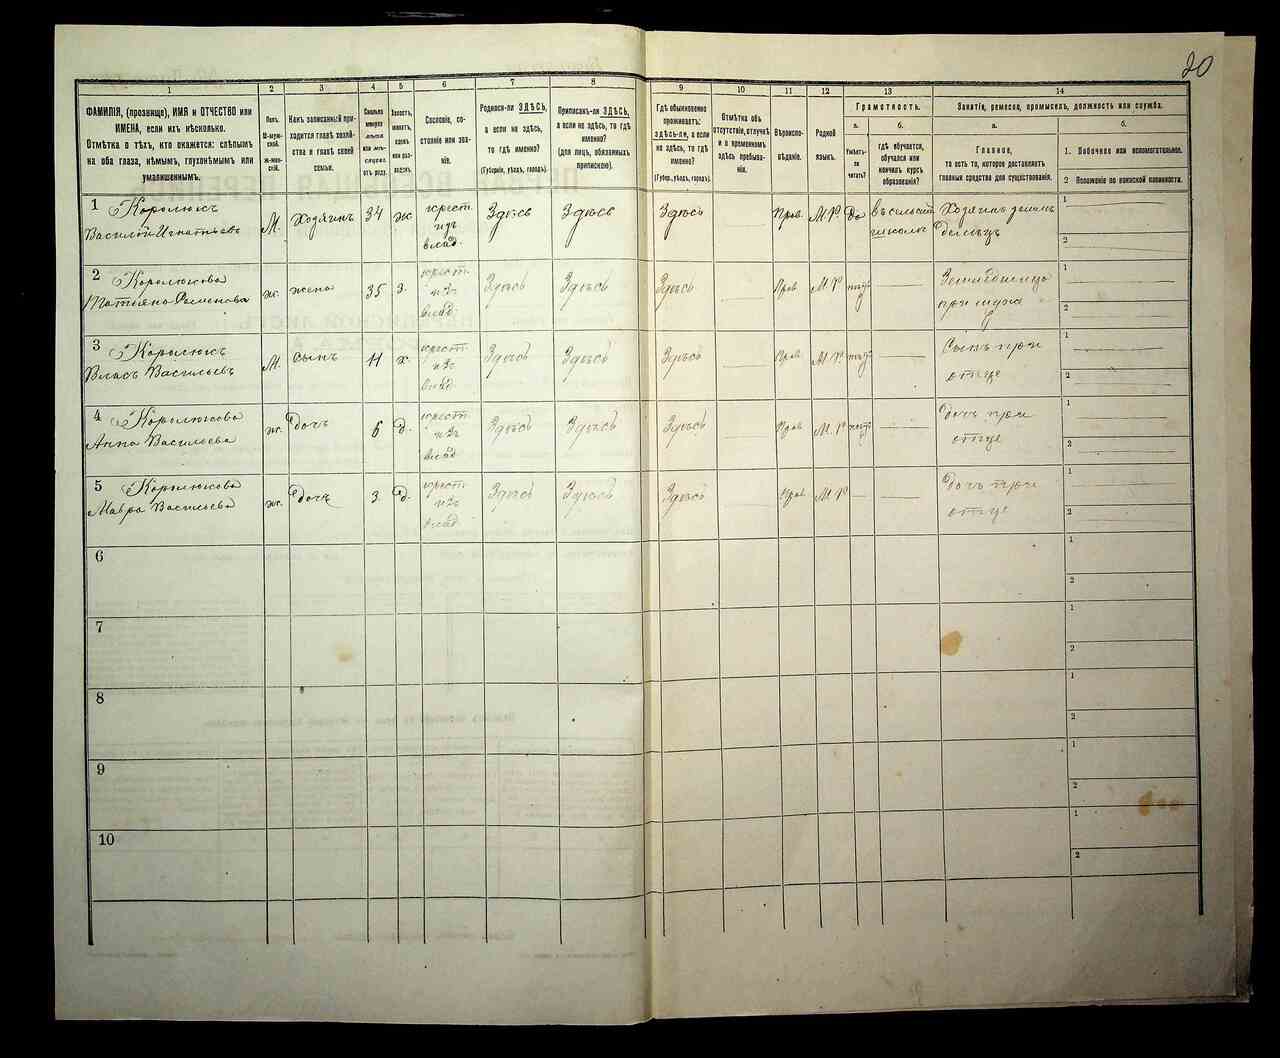 20
1 2 3 4 5 6 7 8 9 10 11 12 13 14
ФАМИЛІЯ, (прозвище), ИМЯ и ОТЧЕСТВО или
ИМЕНА, если ихъ нѣсколько.
Отмѣтка о тѣхъ, кто окажется: слѣпымъ
на оба глаза, нѣмымъ, глухонѣмымъ или
умалишеннымъ.
Полъ.
М-муж-
ской.
Ж-жен-
скій.
Какъ записанный при-
ходится главѣ хозяй-
ства и главѣ своей
семьи.
Сколько
минуло
лѣтъ
или мѣ-
сяцевъ
отъ роду.
Холостъ,
женатъ,
вдовъ
или раз-
веденъ
Сословіе, со-
стояніе или зва-
ніе.
Родился-ли ЗДѢСЬ,
а если не здѣсь,
то гдѣ именно?
(Губернія, уѣздъ, городъ).
Приписанъ-ли ЗДѢСЬ,
а если не здѣсь, то гдѣ
именно?
(для лицъ, обязанныхъ
припискою).
Гдѣ обыкновенно
проживаетъ:
здѣсь-ли, а если
не здѣсь, то гдѣ
именно?
(Губер., уѣздъ, городъ).
Отмѣтка объ
отсутствіи, отлучкѣ
и о временномъ
здѣсь пребыва-
ніи.
Вѣроиспо-
вѣданіе.
Родной
языкъ.
Грамотность.
а.
Умѣетъ-
ли
читать?
б.
гдѣ обучается,
обучался или
кончилъ курсъ
образованія?
Занятіе, ремесло, промыселъ, должность или служба.
а.
Главное,
то есть то, которое доставляетъ
главныя средства для существованія.
б.
1. Побочное или вспомогательное.
2 Положеніе по воинской повинности.
1 Королюкъ
Василій Игнатьевъ М. Хозяинъ 34 ж крест. изъ влад. Здѣсь Здѣсь Здѣсь Прав. М.Р. Да въ сельской школѣ Хозяинъ
1
2
2 Королюкова
Татьяна Семенова ж. жена 35 з. крест. изъ влад. Здѣсь Здѣсь Здѣсь Прав. М.Р. нѣтъ при мужѣ
1
2
3 Королюкъ
Власъ Васильевъ М. сынъ 11 х. крест. изъ влад. Здѣсь Здѣсь Здѣсь Прав. М.Р. нѣтъ Сынъ при
отце
1
2
4 Королюкова
Анна Васильева ж. дочь 6 д. крест. изъ влад. Здѣсь Здѣсь Здѣсь Прав. М.Р. нѣтъ Дочь при
отце
1
2
5 Королюкова
Мавра Васильева ж. дочь 3 д. крест. изъ влад. Здѣсь Здѣсь Здѣсь Прав. М.Р. Дочь при
отце
1
2
6
1
2
7
1
2
8
1
2
9
1
2
10
1
2